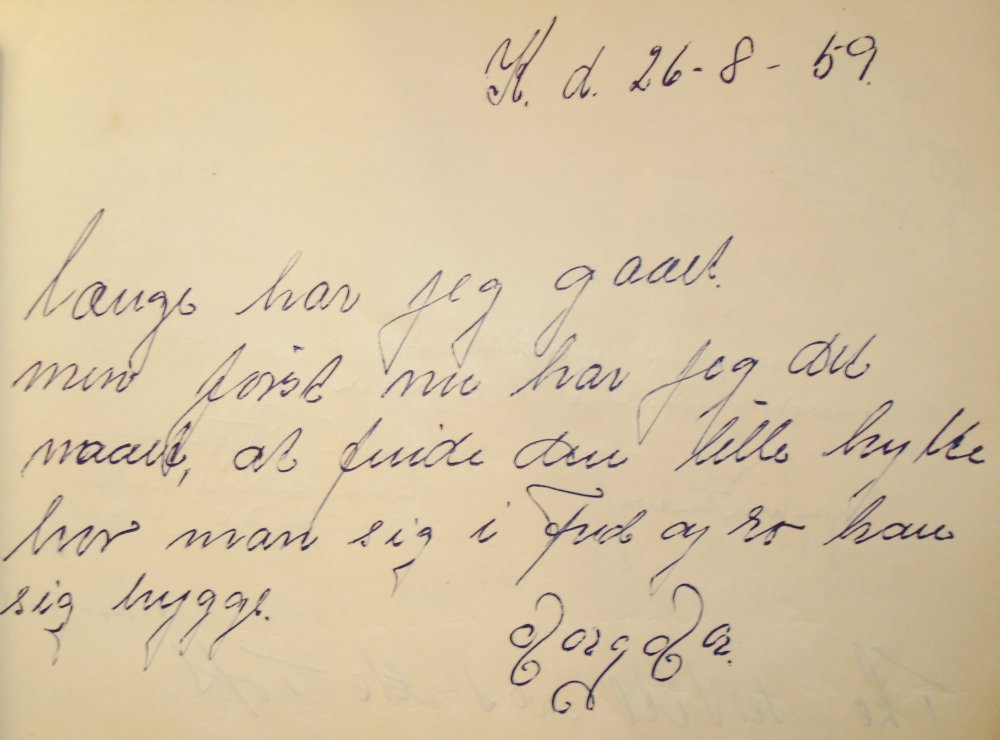 K. d. 26-8-59.
Længe har jeg gaaet.
men først nu har jeg det
naaet, at finde den lille hytte
hvor man sig i Fred og ro kan
sig hygge.